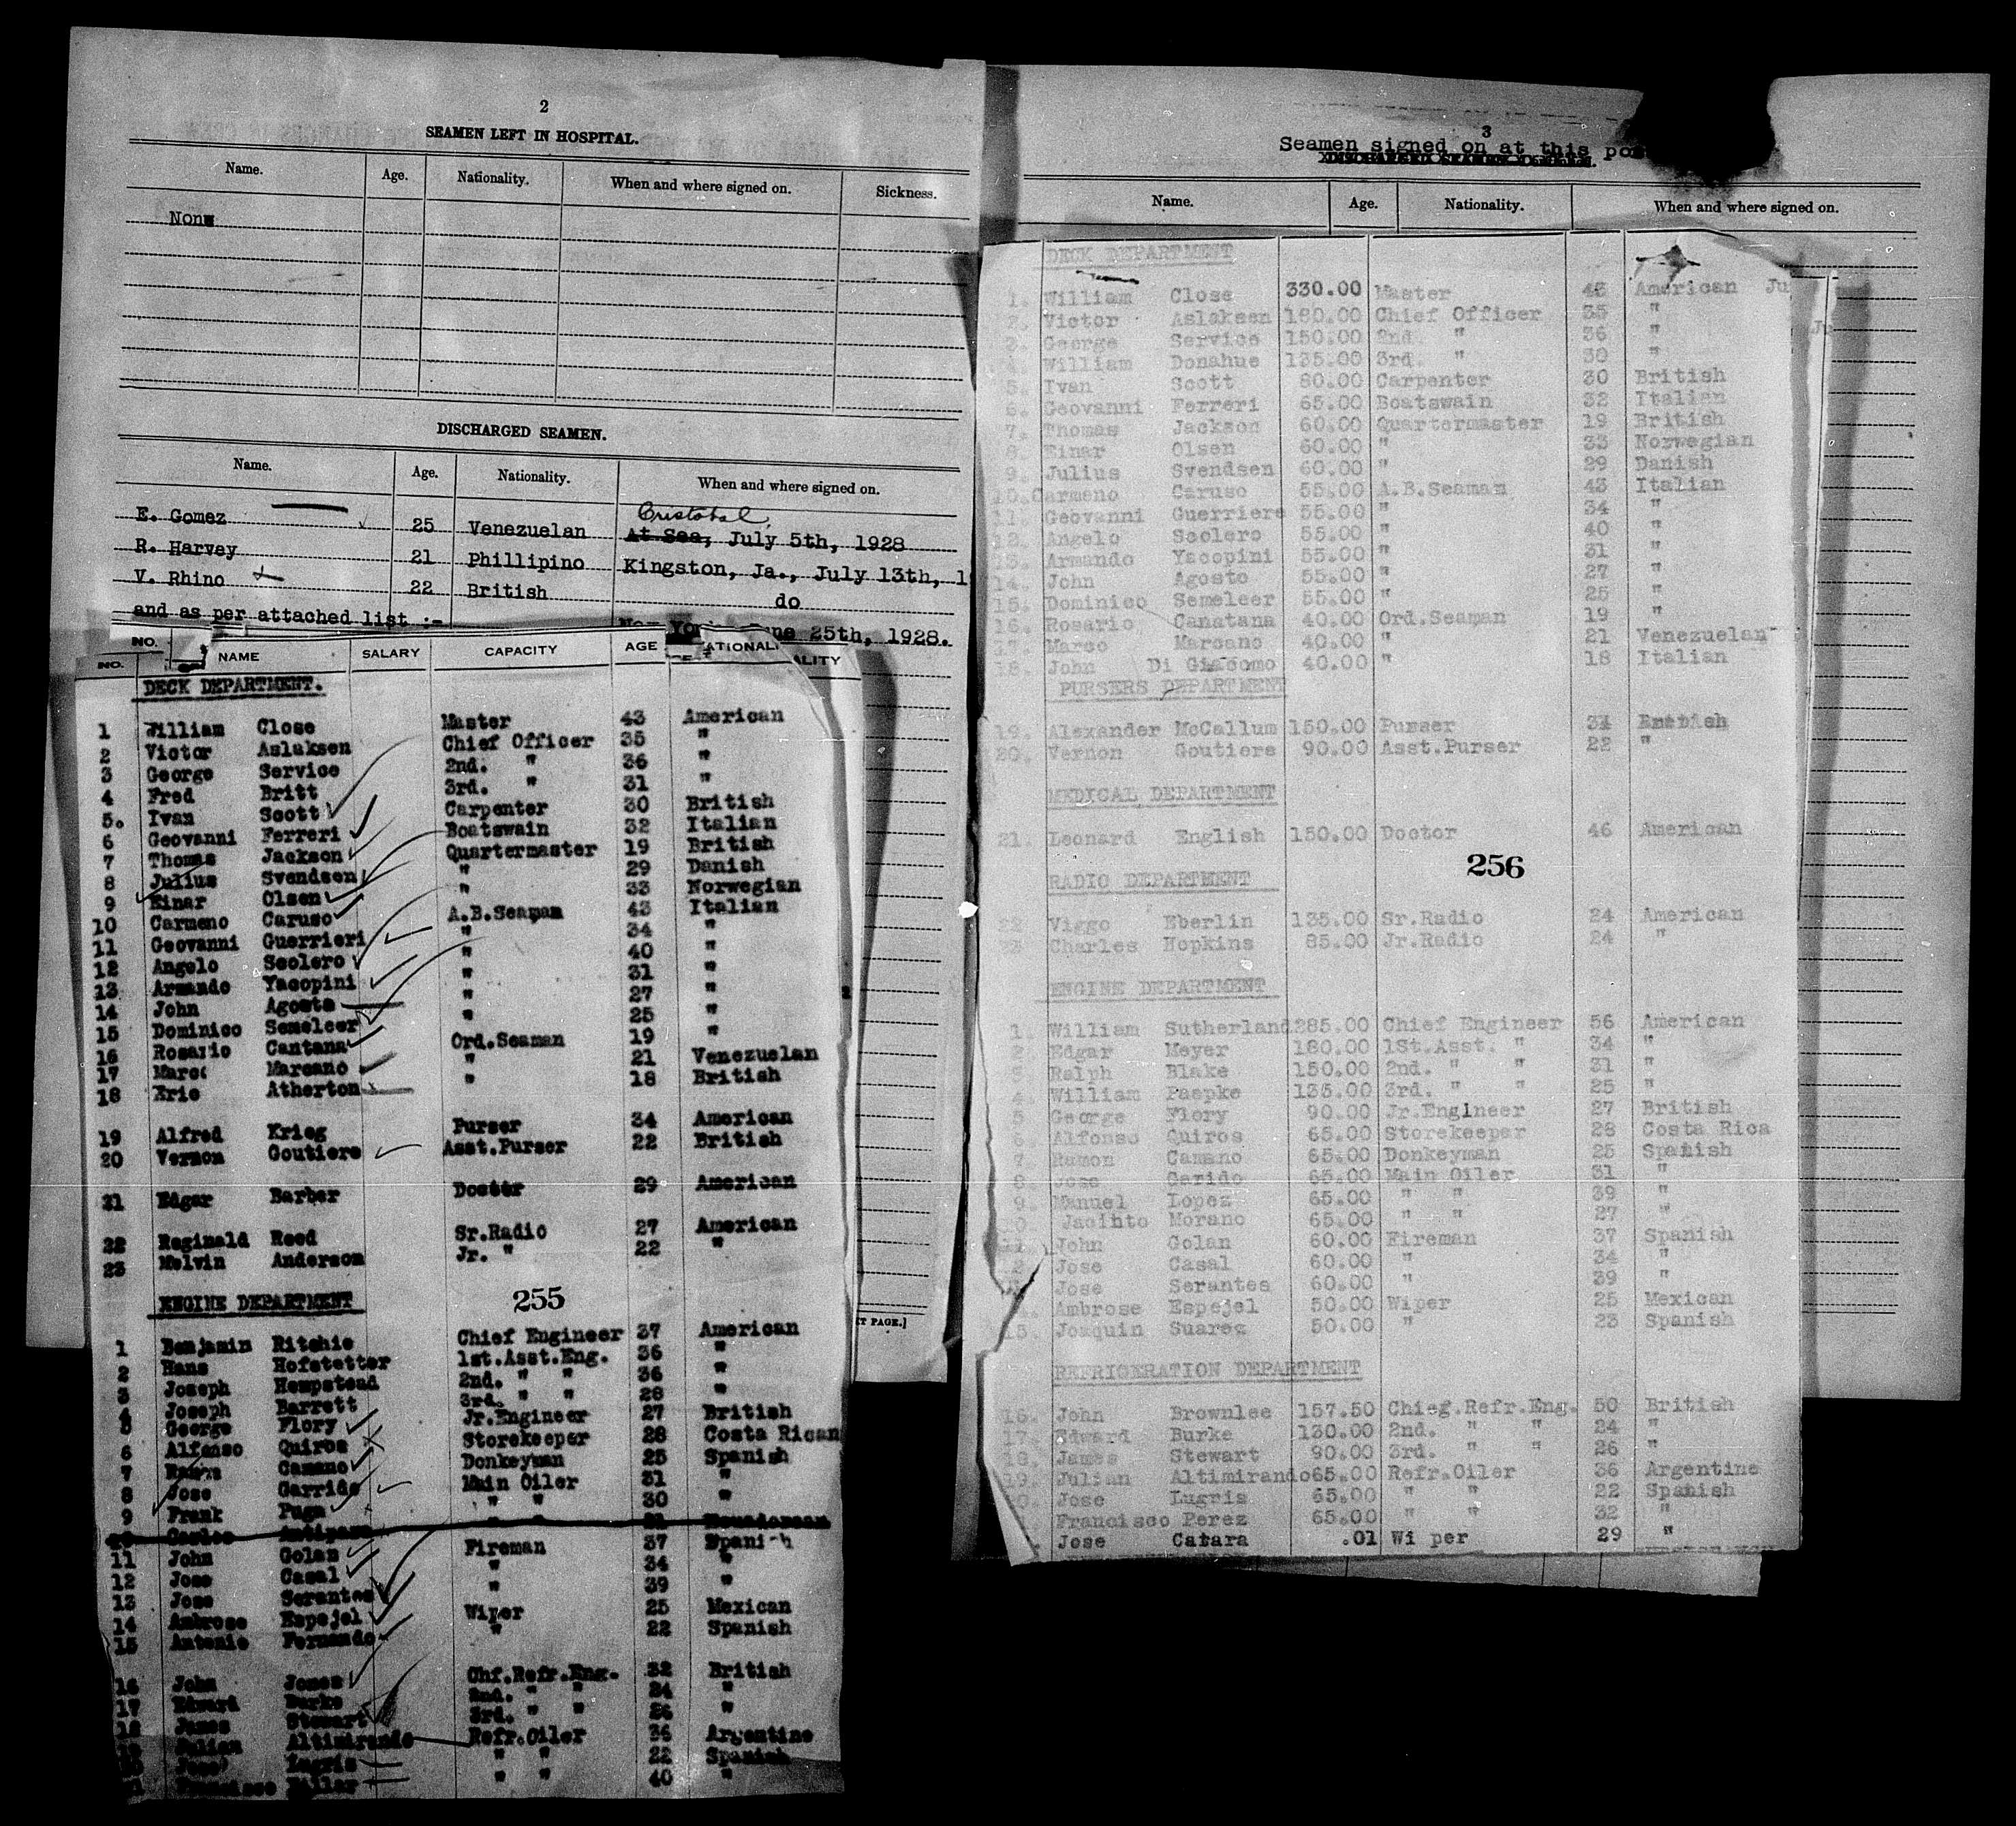 2
SEAMEN LEFT IN HOSPITAL.
Name. Age. Nationality. When and where signed on. Sickness.
None
DISCHARGED SEAMEN.
Name. Age. Nationality. When and where signed on.
Cristobal,
E. Gomez 25 Venezuelan At Sea, July 5th, 1928
R. Harvey 21 Phillipino Kingston, Ja., July 13th, 1
V. Rhino 22 British do
and as per attached list :- 25th, 1928.
NO.
NO. NAME SALARY CAPACITY AGE
DECK DEPARTMENT.
1 William Close Master 43 American
2 Victor Aslaksen Chief Officer 35 "
3 George Service 2nd. " 36 "
4 Fred Britt 3rd. " 31 "
5. Ivan Scott Carpenter 30 British
6 Geovanni Ferreri Boatswain 32 Italian
7 Thomas Jackson Quartermaster 19 British
8 Julius Svendsen " 29 Danish
9 Einar Olsen " 33 Norwegian
10 Carmeno Caruso A.B.Seaman 43 Italian
11 Geovanni Guerrieri " 34 "
12 Angelo Scolero " 40 "
13 Armando Yacopini " 31 "
14 John Agosta " 27 "
15 Dominico Semeleer " 25 "
16 Rosario Cantana Ord.Seaman 19 "
17 Marcano " 21 Venezuelan
18 Eric Atherton " 18 British
19 Alfred Krieg Purser 34 American
20 Vernon Goutiere Asst.Purser 22 British
21 Edgar Barber Doctor 29 American
22 Reginald Reed Sr.Radio 27 American
23 Melvin Anderson Jr. " 22 "
ENGINE DEPARTMENT
255
1 Benjamin Ritchie Chief Engineer 37 American
2 Hans Hofstetter 1st.Asst.Eng. 36 "
3 Joseph Hempstead 2nd. " " 36 "
4 Joseph Barrett 3rd. " " 28 "
5 George Flory Jr.Engineer 27 British
6 Alfonso Quiros Storekeeper 28 Costa Rican
7 Ramon Camano Donkeyman 25 Spanish
8 Jose Garrido Main Oiler 31 "
9 Frank Puga " " 30 "
11 John Golan Fireman 37 Spanish
12 Jose Casal " 34 "
13 Jose Serantes " 39 "
14 Ambrose Espejel Wiper 25 Mexican
15 Antonio Fernando " 22 Spanish
16 John Jones Chf.Refr.Eng. 32 British
17 Edward Burke 2nd. " " 24 "
18 James Stewart 3rd. " " 26 "
Altimirando Refr.Oiler 36 Argentine
Jose Lugris " " 22 Spanish
" " 40 "
T PAGE.]
3
Seamen signed on at this po
Name. Age. Nationality. When and where signed on.
DECK DEPARTMENT
1. William Close 330.00 Master 43 American Ju
2. Victor Aslaksen 180.00 Chief Officer 35 " Ju
3. George Service 150.00 2nd. " 36 "
4. William Donahue 135.00 3rd. " 30 "
5. Ivan Scott 80.00 Carpenter 30 British
6. Geovanni Ferreri 65.00 Boatswain 32 Italian
7. Thomas Jackson 60.00 Quartermaster 19 British
8. Einar Olsen 60.00 " 33 Norwegian
9. Julius Svendsen 60.00 " 29 Danish
10. Carmeno Caruso 55.00 A.B.Seaman 43 Italian
11. Geovanni Guerriere 55.00 " 34 "
12. Angelo Scolero 55.00 " 40 "
13. Armando Yacopini 55.00 " 31 "
14. John Agosto 55.00 " 27 "
15. Dominico Semeleer 55.00 " 25 "
16. Rosario Canatana 40.00 Ord.Seaman 19 "
17. Marco Marcano 40.00 " 21 Venezuelan
18. John Di Giacomo 40.00 " 18 Italian
PURSERS DEPARTMENT
19. Alexander McCallum 150.00 Purser 31 British
20. Vernon Goutiere 90.00 Asst.Purser 22 "
MEDICAL DEPARTMENT
21. Leonard English 150.00 Doctor 46 American
256
RADIO DEPARTMENT
22. Viggo Eberlin 135.00 Sr.Radio 24 American
23. Charles Hopkins 85.00 Jr.Radio 24 "
ENGINE DEPARTMENT
1. William Sutherland 285.00 Chief Engineer 56 American
2. Edgar Meyer 180.00 1St.Asst. " 34 "
3. Ralph Blake 150.00 2nd. " " 31 "
4. William Paepke 135.00 3rd. " " 25 "
5 George Flory 90.00 Jr.Engineer 27 British
Alfonso Quiros 65.00 Storekeeper 28 Costa Rica
7. Ramon Camano 65.00 Donkeyman 25 Spanish
8. Jose Garido 65.00 Main Oiler 31 "
9. Manuel Lopez 65.00 " " 39 "
Jacinto Morano 65.00 " " 27 "
11. John Golan 60.00 Fireman 37 Spanish
Jose Casal 60.00 " 34 "
Jose Serantes 60.00 " 39 "
Ambrose Espejel 50.00 Wiper 25 Mexican
15. Joaquin Suarez 50.00 " 23 Spanish
REFRIGERATION DEPARTMENT
16. John Brownlee 157.50 Chief.Refr.Eng. 50 British
17. Edward Burke 130.00 2nd. " " 24 "
18. James Stewart 90.00 3rd. " " 26 "
19. Julian Altimirando 65.00 Refr.Oiler 36 Argentine
20. Jose Lugris 65.00 " " 22 Spanish
Francisco Perez 65.00 " " 32 "
Jose Catara .01 Wi per 29 "